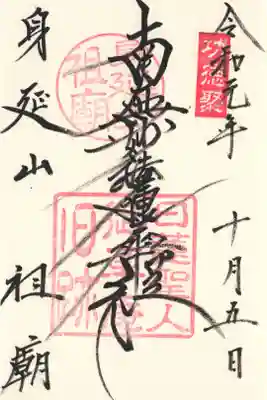 令和元年 十月五日
功徳聚
南無妙法蓮華経
身延山 祖廟
祖廟
日蓮聖人
旧跡